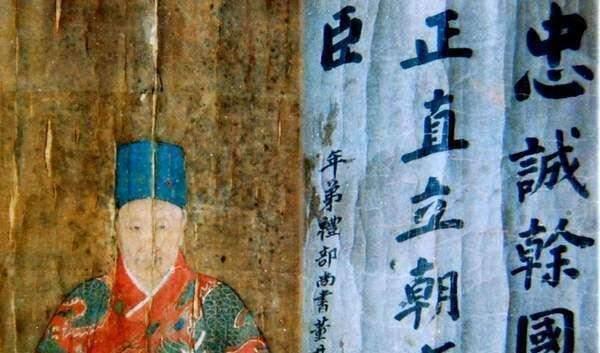 忠誠幹國
正直立朝
臣
年弟禮部尚書董